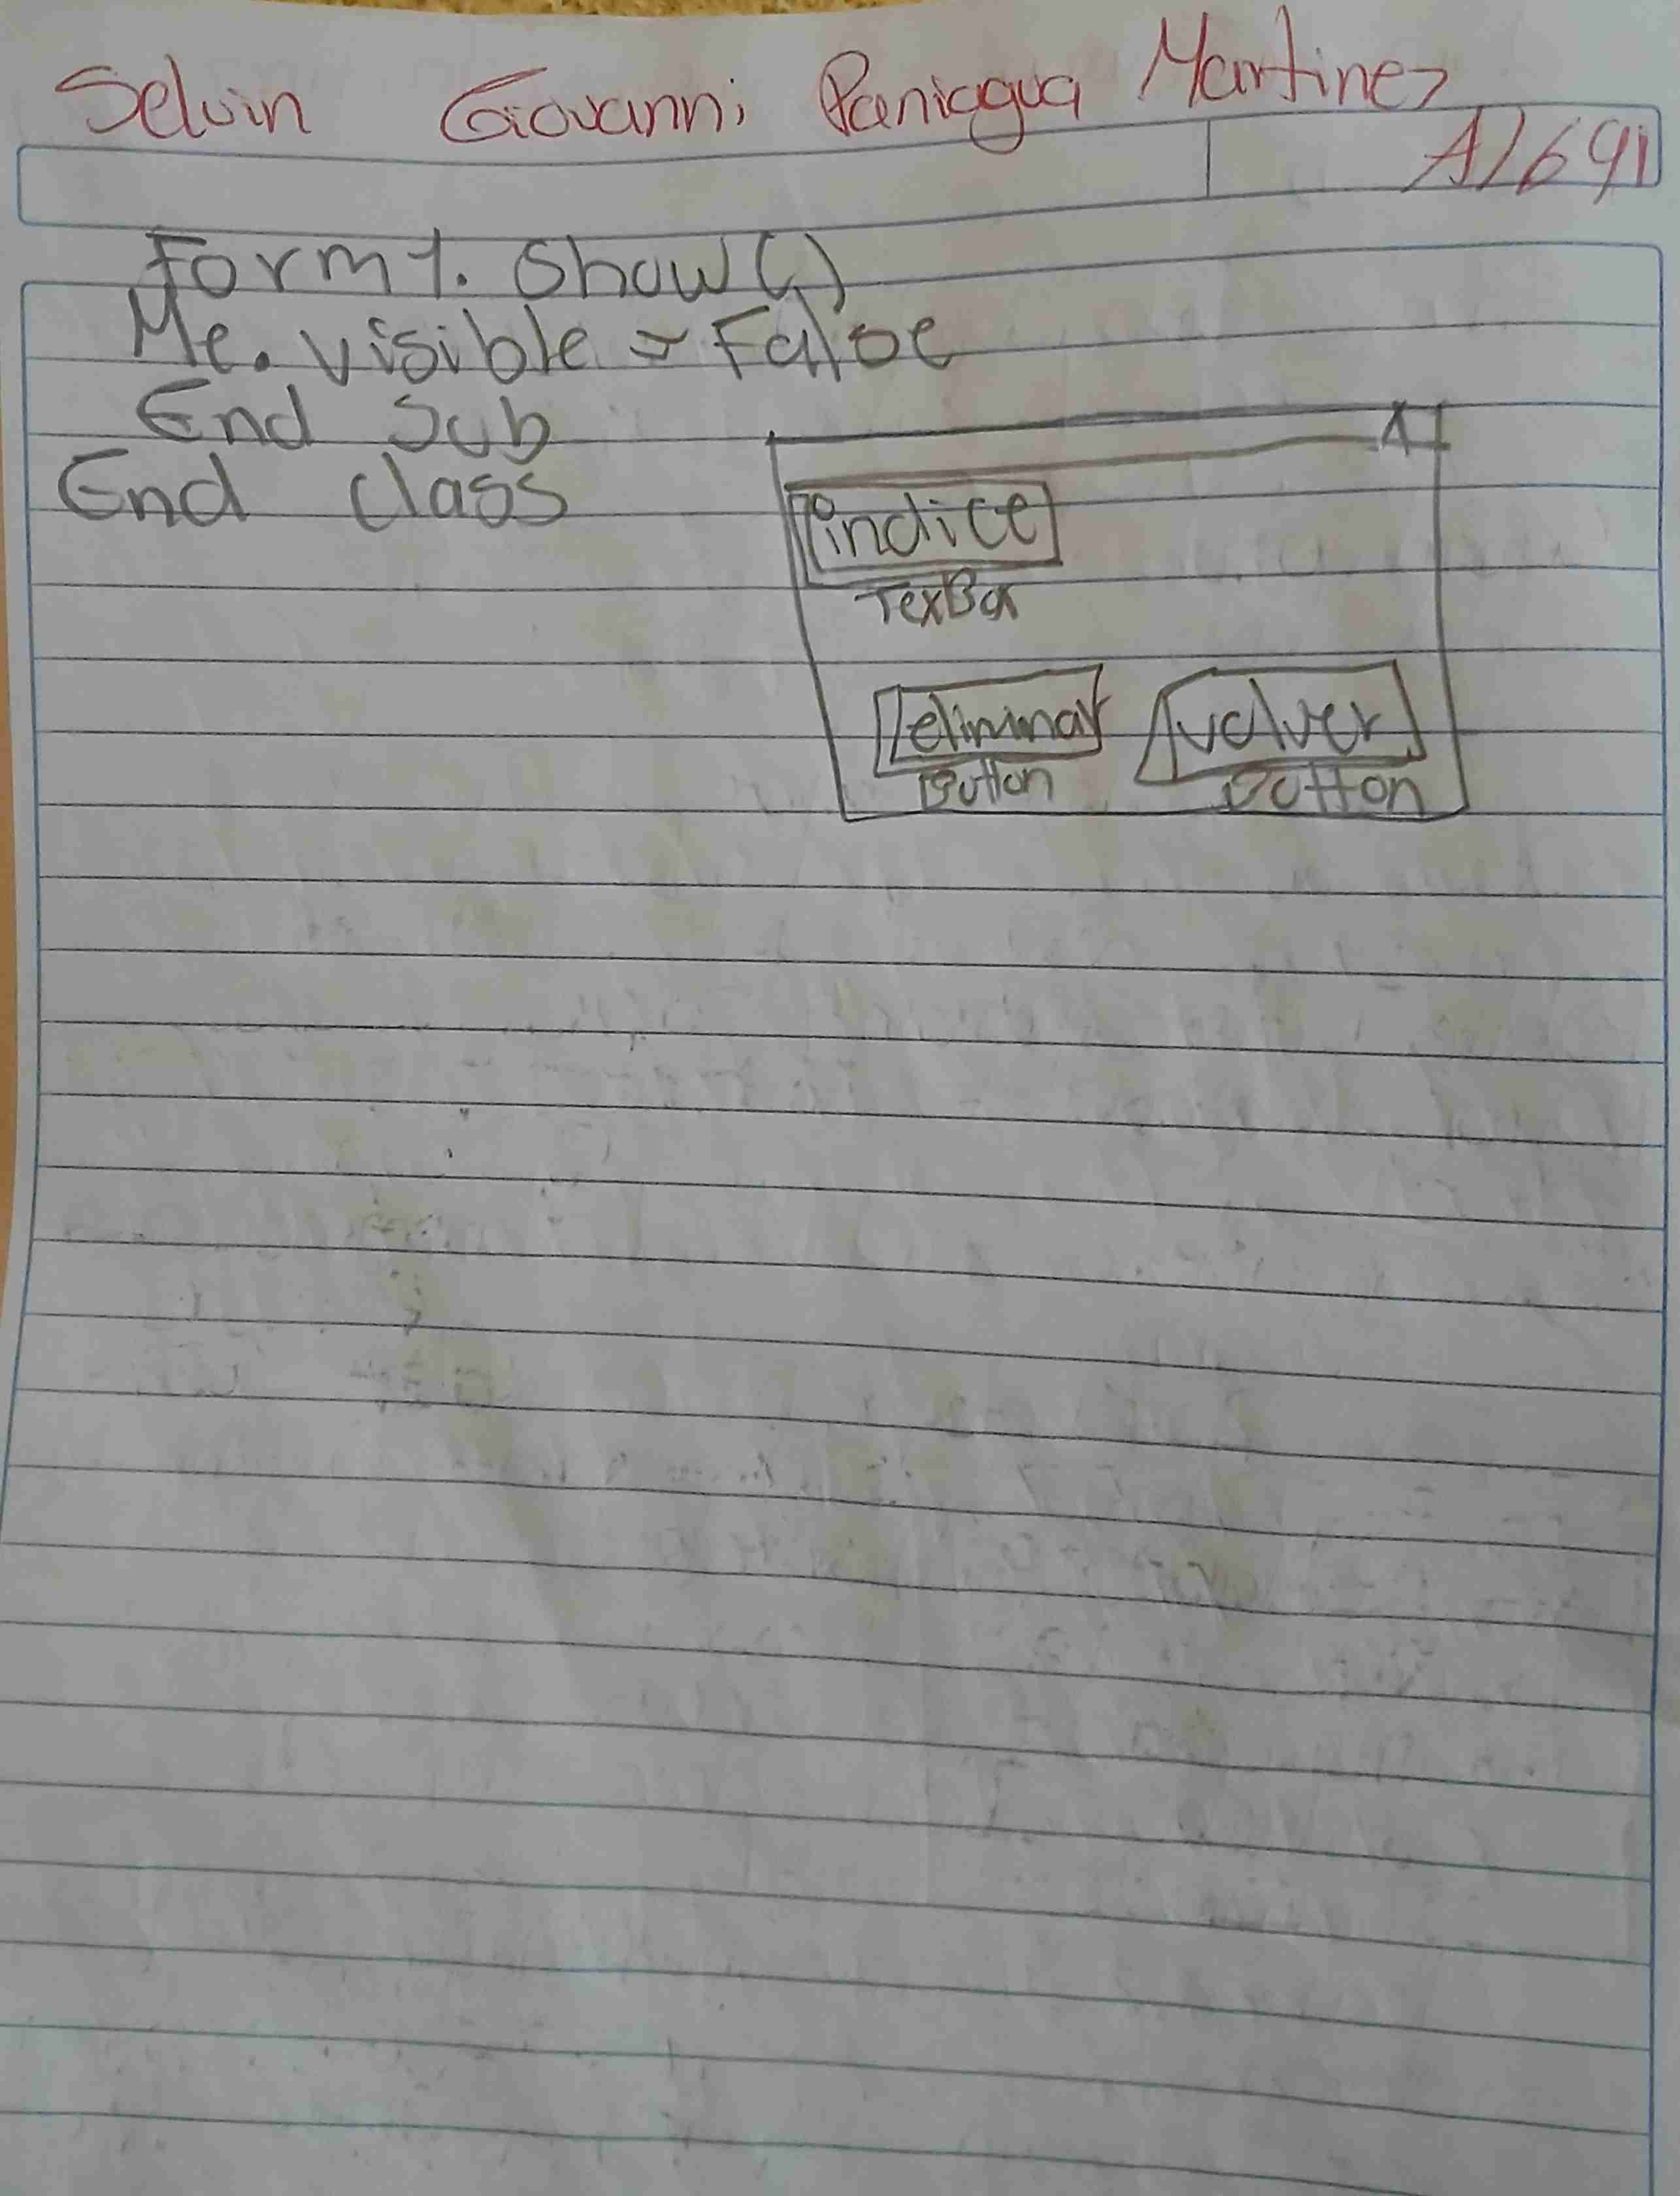 Selvin Giovanni Paniagua Martinez
A1691
Form1. Show()
Me. visible = False
End Sub
End class
X
indice
TexBox
eliminar volver
Button Button